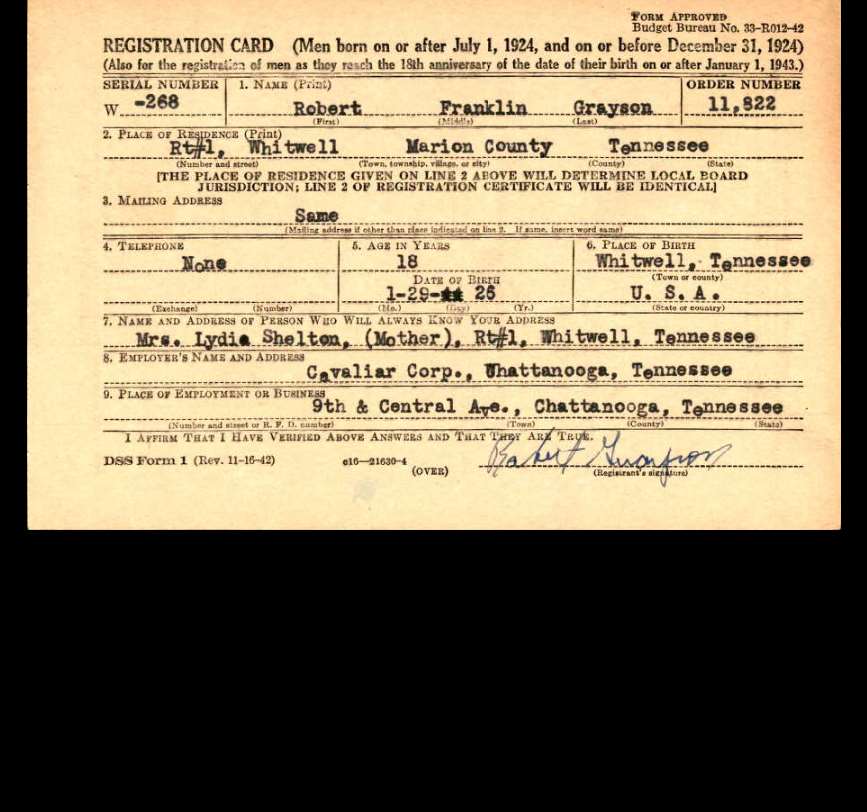 FORM APPROVED
Budget Bureau No. 33-R012-42
REGISTRATION CARD (Men born on or after July 1, 1924, and on or before December 31, 1924)
(Also for the registration of men as they reach the 18th anniversary of the date of their birth on or after January 1, 1943.)
SERIAL NUMBER 1. NAME (Print) ORDER NUMBER
W -268 Robert Franklin Grayson 11,822
(First) (Middle) (Last)
2. PLACE OF RESIDENCE (Print)
Rt#1, Whitwell Marion County Tennessee
(Number and street) (Town, township, village, or city) (County) (State)
[THE PLACE OF RESIDENCE GIVEN ON LINE 2 ABOVE WILL DETERMINE LOCAL BOARD
JURISDICTION; LINE 2 OF REGISTRATION CERTIFICATE WILL BE IDENTICAL]
3. MAILING ADDRESS
Same
(Mailing address if other than place indicated on line 2. If same, insert word same)
4. TELEPHONE 5. AGE IN YEARS 6. PLACE OF BIRTH
None 18 Whitwell, Tennessee
DATE OF BIRTH (Town or county)
1-29- 25 U. S. A.
(Exchange) (Number) (Mo.) (Day) (Yr.) (State or country)
7. NAME AND ADDRESS OF PERSON WHO WILL ALWAYS KNOW YOUR ADDRESS
Mrs. Lydia Shelton, (Mother), Rt#1, Whitwell, Tennessee
8. EMPLOYER'S NAME AND ADDRESS
Cavaliar Corp., Whattanooga, Tennessee
9. PLACE OF EMPLOYMENT OR BUSINESS
9th & Central Ave., Chattanooga, Tennessee
(Number and street or R. F. D. number) (Town) (County) (State)
I AFFIRM THAT I HAVE VERIFIED ABOVE ANSWERS AND THAT THEY ARE TRUE.
DSS Form 1 (Rev. 11-16-42) c16-21630-4 Robert Grayson
(OVER) (Registrant's signature)